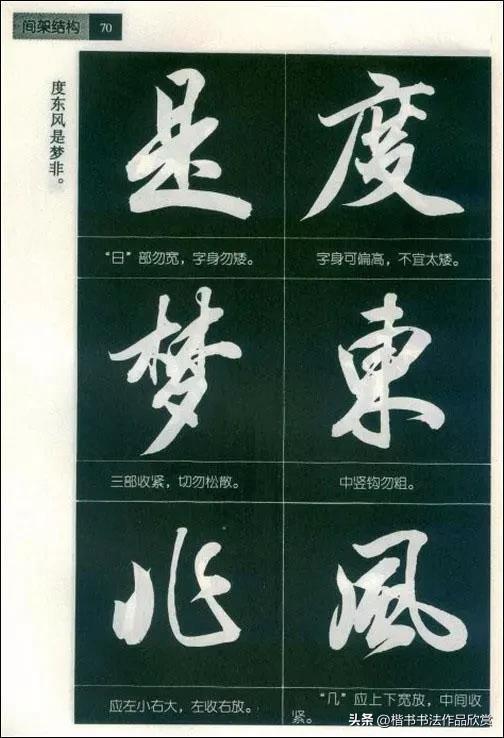 间架结构 70
度东风是梦非。
度
字身可偏高，不宜太矮。
東
中竖钩勿粗。
風
“几”应上下宽放，中间收
紧。
是
“日”部勿宽，字身勿矮。
梦
三部收紧，切勿松散。
非
应左小右大，左收右放。
头条 @楷书书法作品欣赏